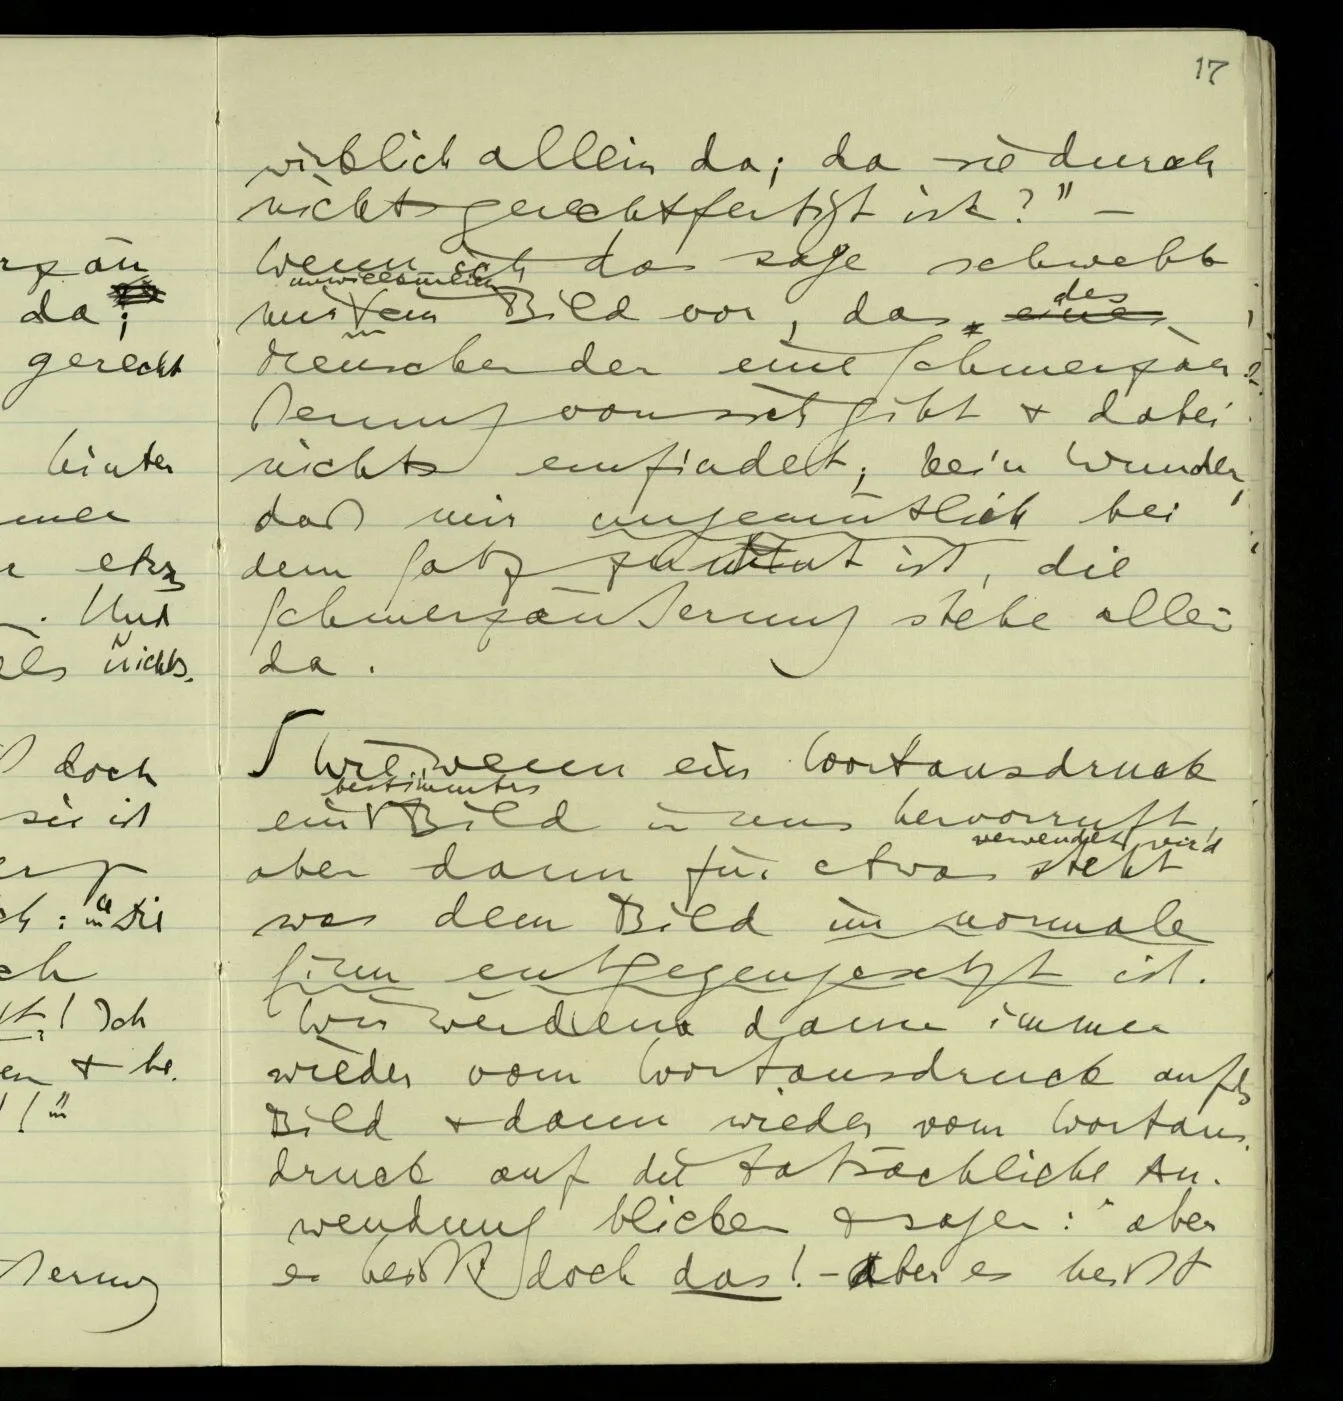 17
wirklich allein da; da sie durch
nichts gerechtfertigt ist?" —
Wenn ich das sage schwebt
unwillkürlich
mir ein Bild vor, das
des
eines
Menschen der eine Schmerzäu-
ßerung von sich gibt & dabei
nichts empfindet; kein Wunder,
daß mir ungemütlich bei
dem Satz zumut ist, die
Schmerzäußerung stehe allein
da.
∫ Wie wenn ein Wortausdruck
bestimmtes
ein Bild in uns hervorruft,
verwendet wird
aber dann für etwas steht
was dem Bild im normale
Sinn entgegengesetzt ist.
Wir werden dann immer
wieder vom Wortausdruck aufs
Bild & dann wieder vom Wortaus-
druck auf die tatsächliche An-
wendung blicken & sagen: "aber
es heißt doch das! – Aber es heißt
rzäu
da;
gerecht
hinter
etwas
. Und
als nichts.
doch
sie ist
Die
! Ich
en & be-
ßerung